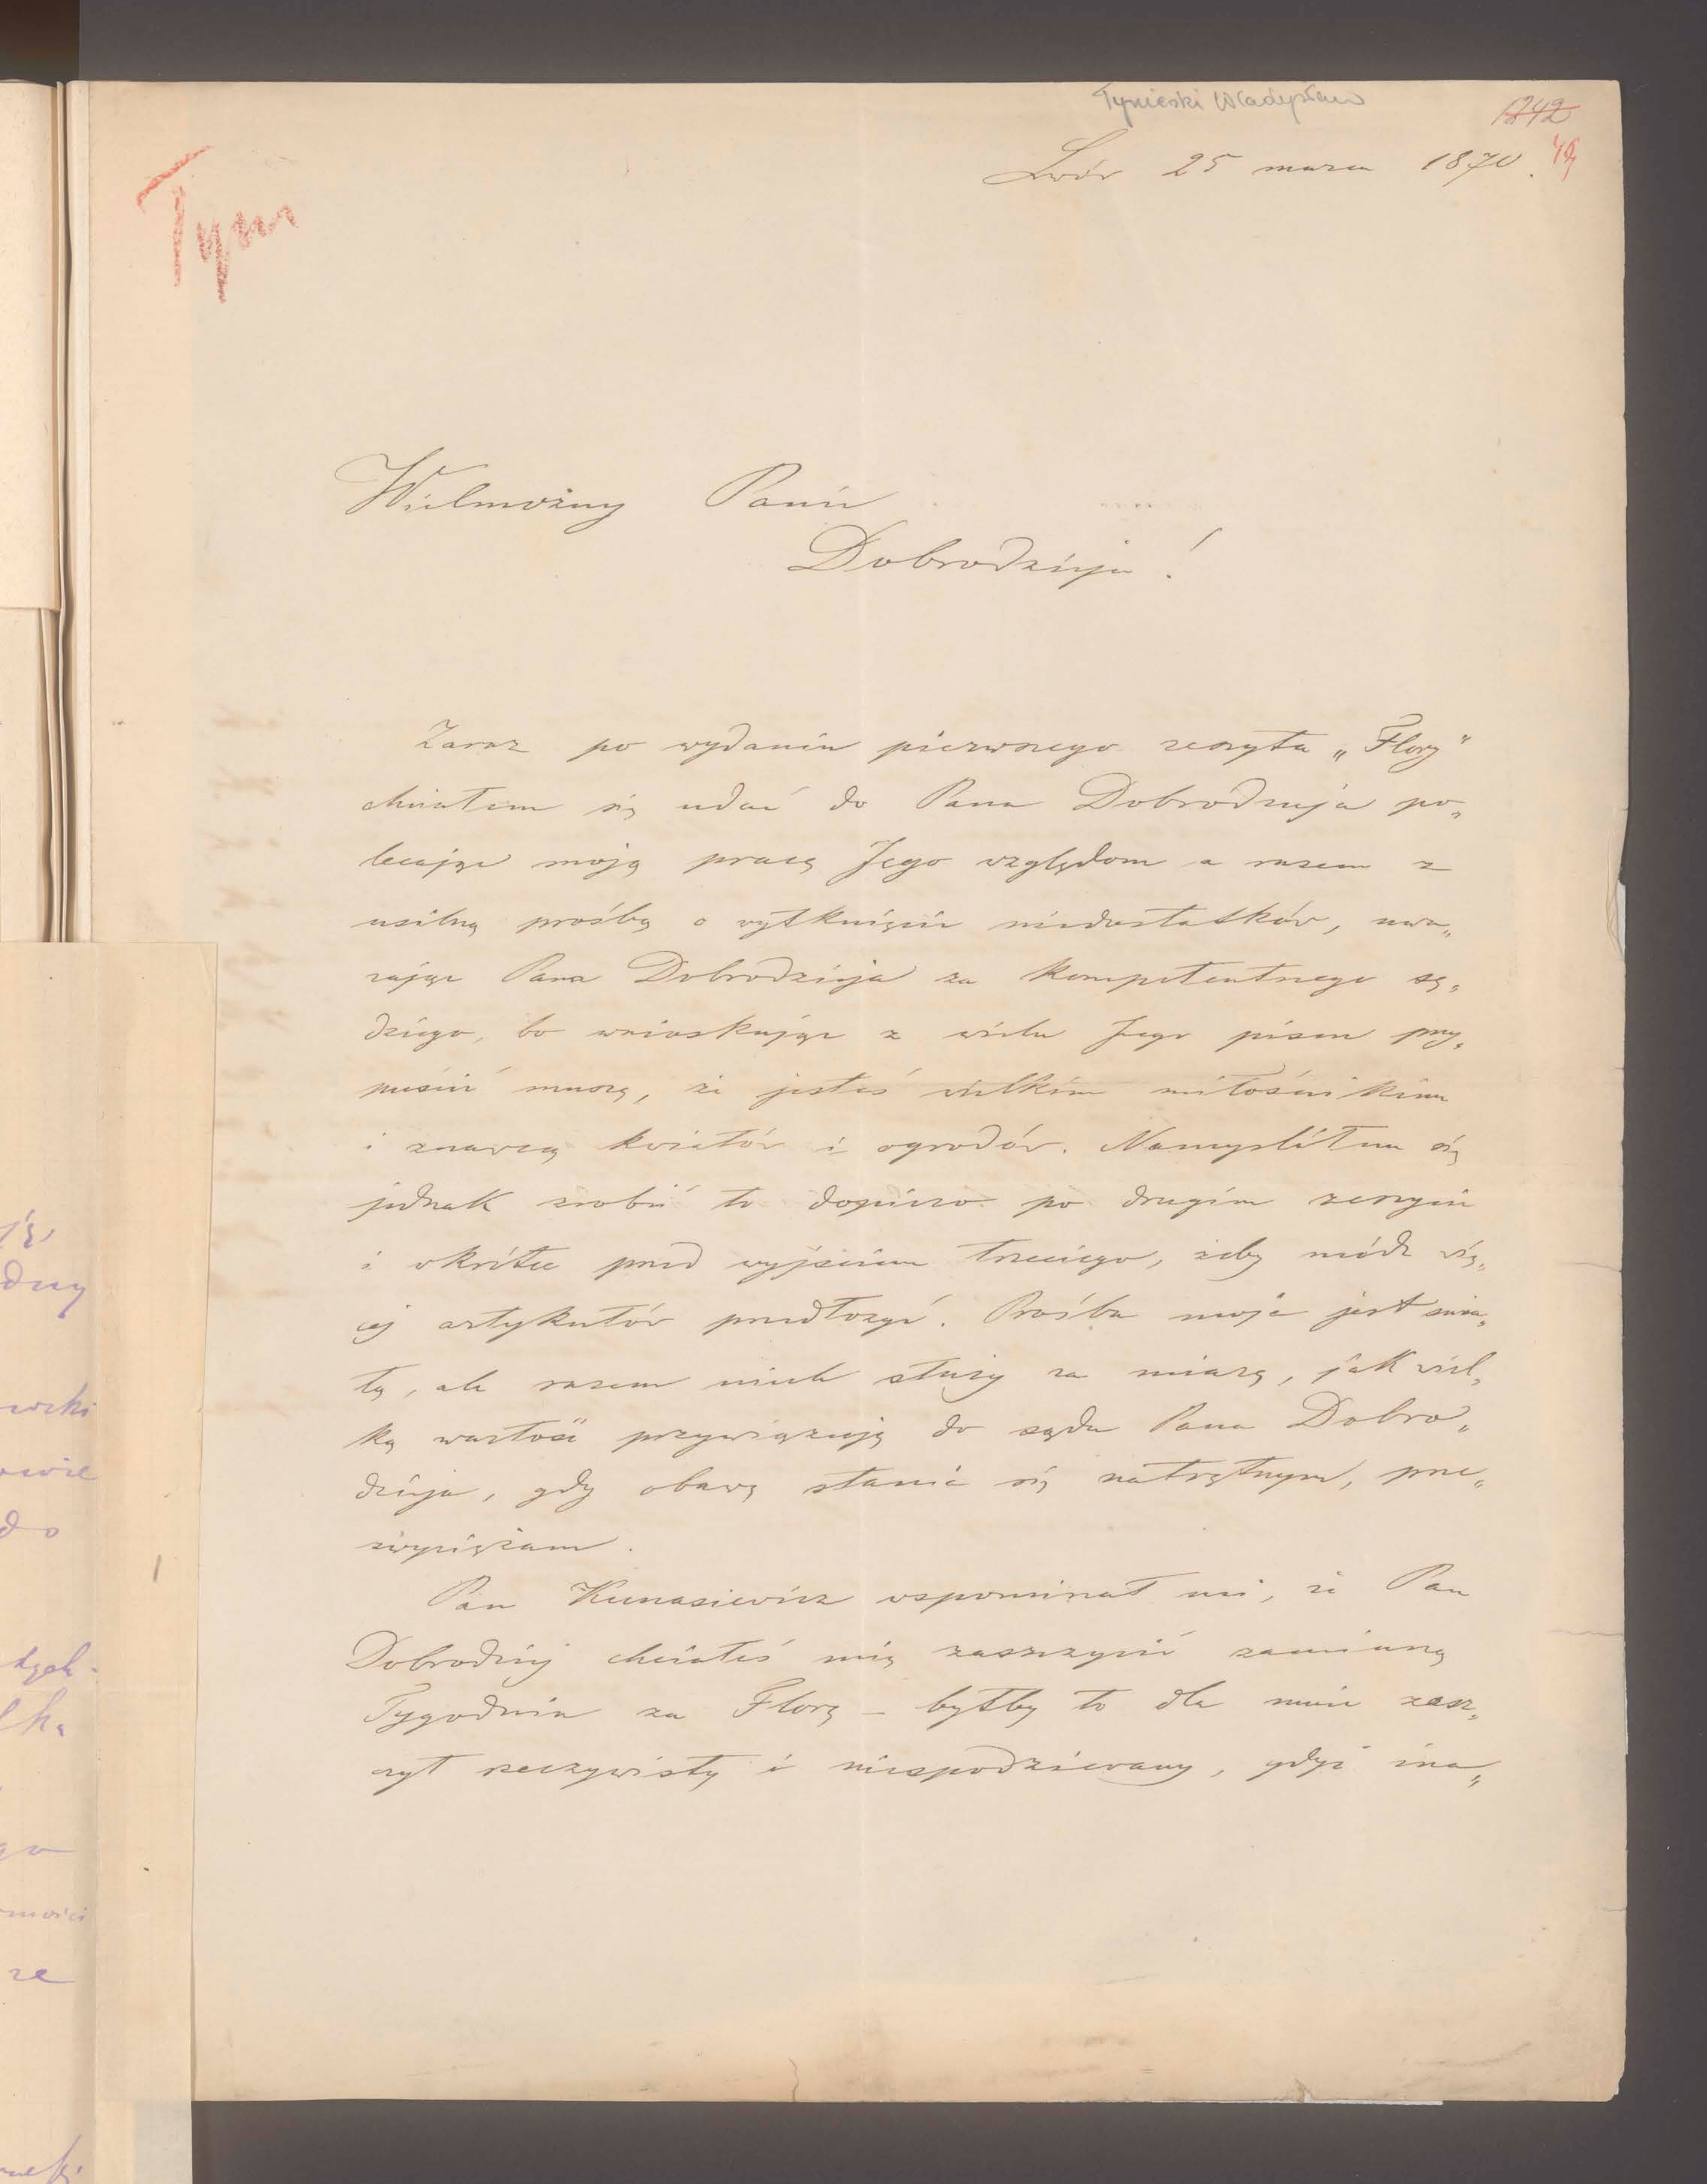 Tyniecki Władysław
1242
Lwów 25 marca 1870.
Tyn
Wielmożny Panie
Dobrodzieju!
Zaraz po wydaniu pierwszego zeszytu „Flory"
chciałem się udać do Pana Dobrodzieja po„
lecając moją pracę Jego względom a razem z
usilną prośbą o wytknięcie niedostatków, uwa„
żając Pana Dobrodzieja za kompetentnego sę„
dziego, bo wnioskując z wielu Jego pism przy„
puścić muszę, że jesteś wielkim miłośnikiem
i znawcą kwiatów i ogrodów. Namyśliłem się
jednak zrobić to dopiero po drugim zeszycie
i okrótce przed wyjściem trzeciego, żeby módz wię„
cej artykułów przedłożyć. Prośba moja jest śmia„
łą, ale razem niech służy za miarę, jak wiel„
ką wartość przywiązuję do sądu Pana Dobro„
dzieja, gdy obawę stania się natrętnym, prze„
zwyciężam.
Pan Kunasiewicz wspominał mi, że Pan
Dobrodziej chciałeś mię zaszczycić zamianą
Tygodnia za Florę – byłby to dla mnie zasz„
czyt rzeczywisty i niespodziewany, gdyż ina„